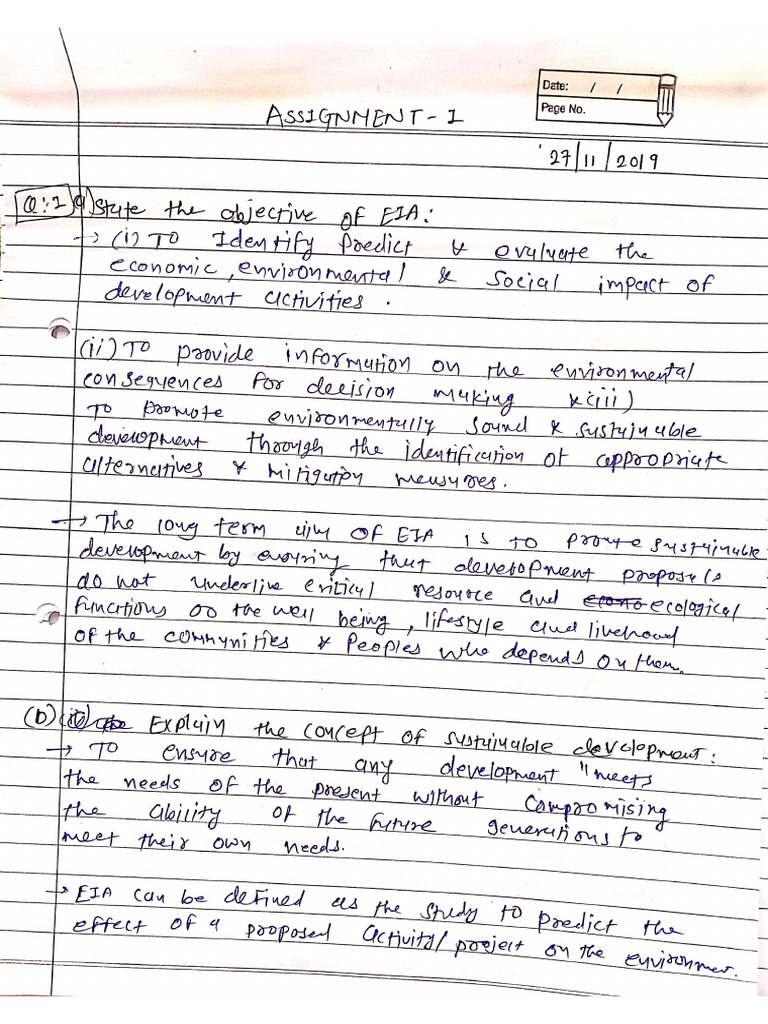 Date: / /
Page No.
ASSIGNMENT - 1
27/11/2019
Q:1 a) State the objective of EIA:
→ (i) To Identify Predict & evaluate the
economic, environmental & Social impact of
development activities.
(ii) To provide information on the environmental
consequences for decision making & (iii)
To promote environmentally Sound & sustainable
development through the identification of appropriate
alternatives & Mitigation measures.
→ The long term aim of EIA is to promote sustainable
development by ensuring that development proposals
do not underline critical resource and ecological
functions or the well being, lifestyle and livehood
of the communities & Peoples who depends on them.
(b) Explain the concept of sustainable development:
→ To ensure that any development "meets
the needs of the present without compromising
the ability of the future generations to
meet their own needs.
→ EIA can be defined as the study to predict the
effect of a proposed activity/project on the environmet.